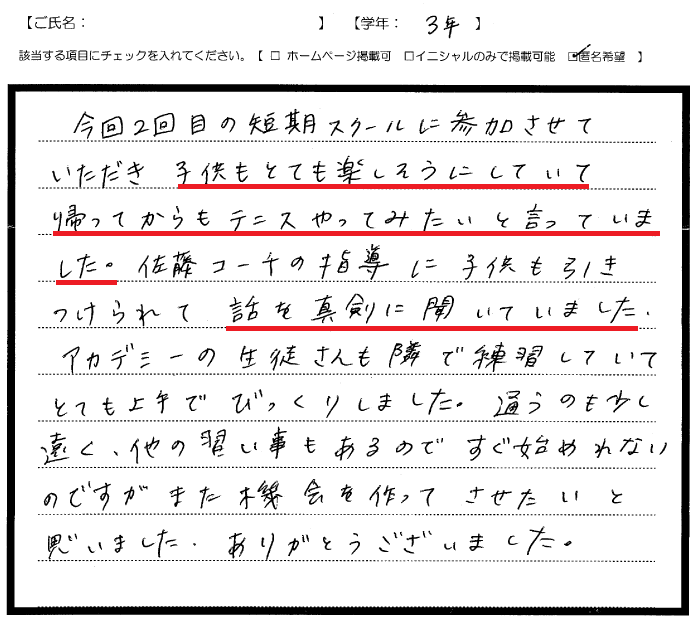 【ご氏名： 】 【学年： 3年 】
該当する項目にチェックを入れてください。【 □ ホームページ掲載可 □イニシャルのみで掲載可能 ☑匿名希望 】
今回2回目の短期スクールに参加させて
いただき 子供もとても楽しそうにしていて
帰ってからもテニスやってみたいと言っていま
した。佐藤コーチの指導に子供も引き
つけられて 話を真剣に聞いていました.
アカデミーの生徒さんも隣で練習していて
とても上手でびっくりしました。通うのも少し
遠く、他の習い事もあるのですぐ始めれない
のですがまた機会を作ってさせたいと
思いました. ありがとうございました。